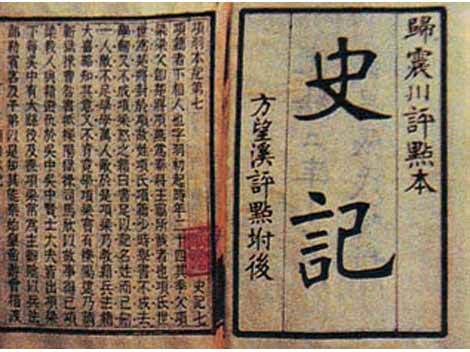 歸震川評點本
史記
方望溪評點坿後
史記七
項羽本紀第七
項籍者下相人也字羽初起時年二十四其季父項
梁梁父卽楚將項燕爲秦將王翦所戮者也項氏世
世爲楚將封於項故姓項氏項籍少時學書不成去
學劍又不成項梁怒之籍曰書足以記名姓而已劍
一人敵不足學學萬人敵於是項梁乃敎籍兵法籍
大喜略知其意又不肯竟學項梁嘗有櫟陽逮乃請
蘄獄掾曹咎書抵櫟陽獄掾司馬欣以故事得已項
梁殺人與籍避仇於吳中吳中賢士大夫皆出項梁
下每吳中有大繇役及喪項梁常爲主辦陰以兵法
部勒賓客及子弟以是知其能秦始皇帝游會稽渡